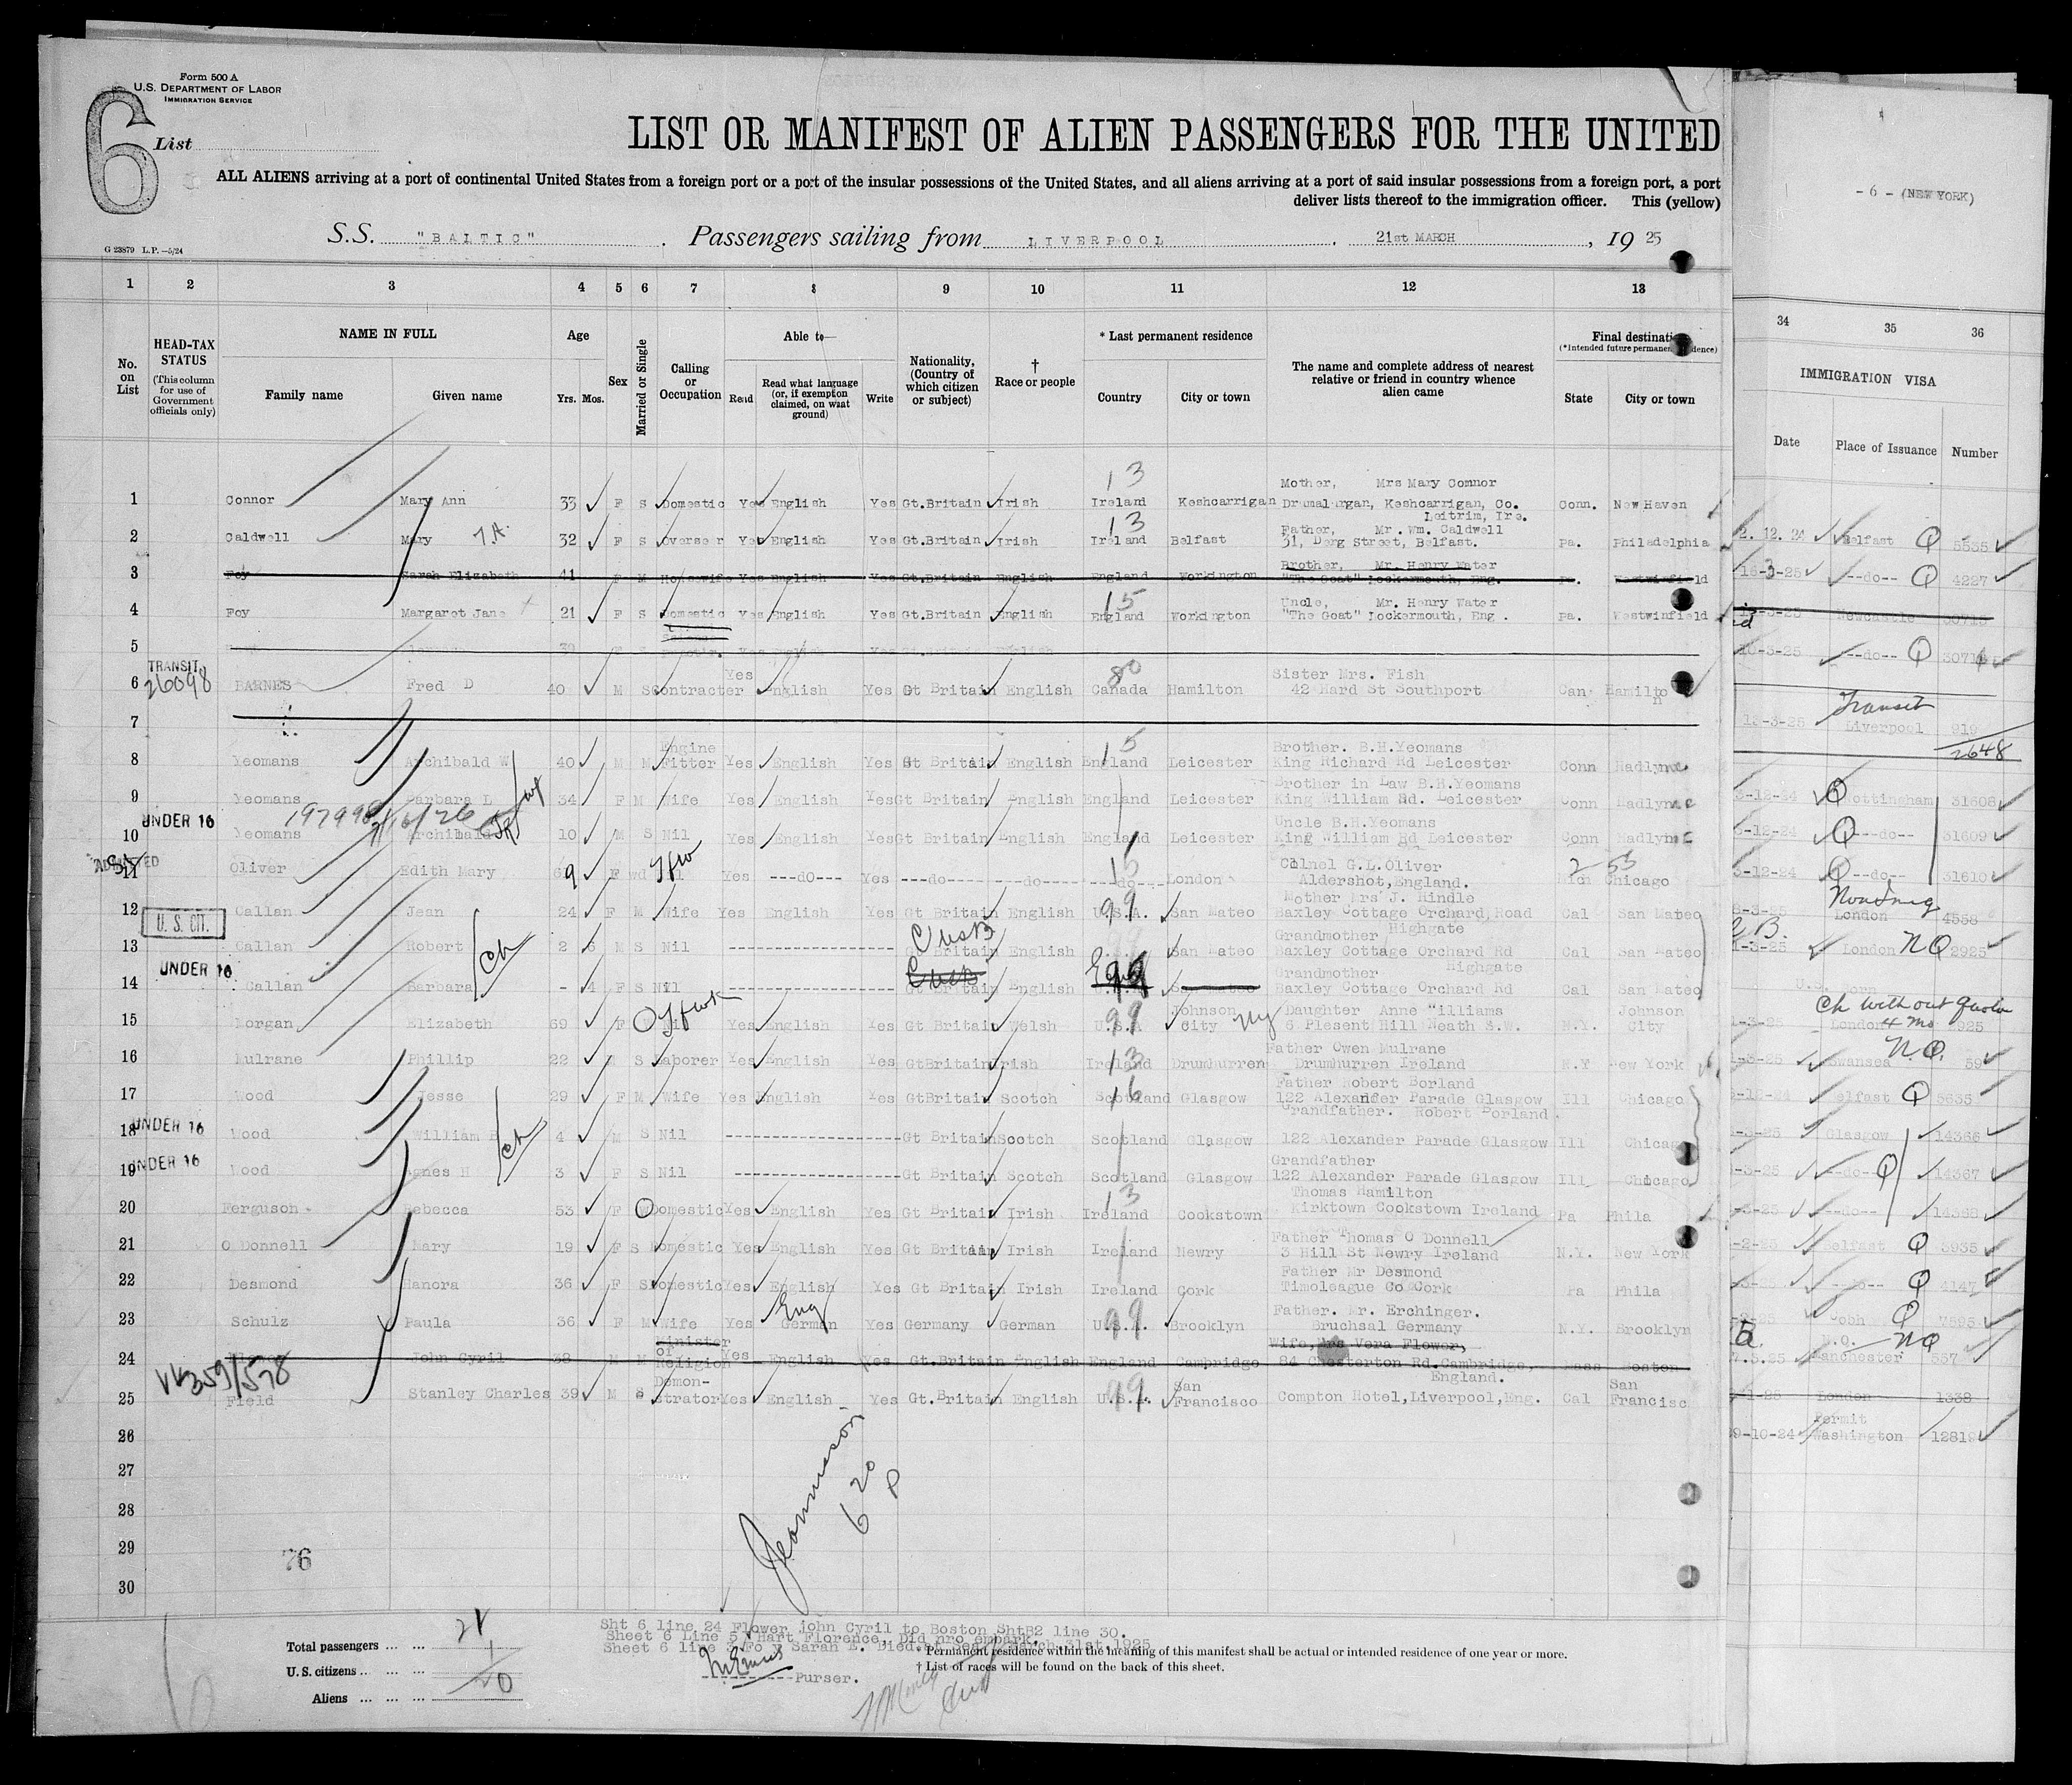 Form 500 A
U.S. DEPARTMENT OF LABOR
IMMIGRATION SERVICE
6 List
LIST OR MANIFEST OF ALIEN PASSENGERS FOR THE UNITED
ALL ALIENS arriving at a port of continental United States from a foreign port or a port of the insular possessions of the United States, and all aliens arriving at a port of said insular possessions from a foreign port, a port
deliver lists thereof to the immigration officer. This (yellow)
- 6 - (NEW YORK)
S.S. "BALTIC" . Passengers sailing from LIVERPOOL . 21st MARCH , 19 25
G 23879 L.P.—5/24
1 2 3 4 5 6 7 8 9 10 11 12 13 34 35 36
No. on List
HEAD-TAX STATUS (This column for use of Government officials only)
NAME IN FULL
Family name Given name
Age
Yrs. Mos.
Sex
Married or Single
Calling or Occupation
Able to—
Read Read what language (or, if exemption claimed, on what ground) Write
Nationality, (Country of which citizen or subject)
† Race or people
* Last permanent residence
Country City or town
The name and complete address of nearest relative or friend in country whence alien came
Final destination
State City or town
IMMIGRATION VISA
Date Place of Issuance Number
1 Connor Mary Ann 33 F S Domestic Yes English Yes Gt.Britain Irish 13 Ireland Keshcarrigan Mother, Mrs Mary Connor Drumalurgan, Keshcarrigan, Co. Leitrim, Ire. Conn. New Haven
2. 12. 24 Belfast Q 5535
2 Caldwell Mary 32 F S Yes English Yes Gt.Britain Irish 13 Ireland Belfast Father, Mr. Wm. Caldwell 31, Derg Street, Belfast. Pa. Philadelphia
16-3-25 --do-- Q 4227
3 Foy Sarah Elizabeth 41 F M Housewife Yes English Yes Gt.Britain English England Workington Brother, Mr. Henry Water "The Goat" Cockermouth, Eng. Pa. Westwinfield
Newcastle
4 Foy Margaret Jane 21 F S Domestic Yes English Yes Gt.Britain English 15 England Workington Uncle, Mr. Henry Water "The Goat" Cockermouth, Eng. Pa. Westwinfield
--do-- Q
5
TRANSIT
26098
6 BARNES Fred D 40 M S Contracter Yes English Yes Gt Britain English 80 Canada Hamilton Sister Mrs. Fish 42 Hard St Southport Can Hamilton
13-3-25 Transit Liverpool 919
2648
7
8 Yeomans Archibald W 40 M M Engine Fitter Yes English Yes Gt Britain English 15 England Leicester Brother. B.H.Yeomans King Richard Rd Leicester Conn Hadlyme
3-12-24 Q Nottingham 31608
9 Yeomans Barbara L 34 F M Wife Yes English Yes Gt Britain English England Leicester Brother in Law B.H.Yeomans King William Rd. Leicester Conn Hadlyme
3-12-24 Q --do-- 31609
UNDER 16
10 Yeomans Archibald 10 M S Nil Yes English Yes Gt Britain English England Leicester Uncle B.H.Yeomans King William Rd Leicester Conn Hadlyme
3-12-24 Q --do-- 31610
ADMITTED
11 Oliver Edith Mary F wd Yes ---do--- Yes ---do---- ---do---- ---do--- London Colnel G.L.Oliver Aldershot,England. Chicago
London 4558
12 Callan Jean 24 F M Wife Yes English Yes Gt Britain English 99 U.S.A. San Mateo Mother Mrs J. Hindle Baxley Cottage Orchard Road Highgate Cal San Mateo
London NQ 2925
U. S. CIT.
13 Callan Robert 2 6 M S Nil Gt Britain English San Mateo Grandmother Baxley Cottage Orchard Rd Highgate Cal San Mateo
U.S. Born
UNDER 16
14 Callan Barbara - 4 F S Nil Gt Britain English Grandmother Baxley Cottage Orchard Rd Cal San Mateo
Ch without Quota
London 4 mo 925
15 Morgan Elizabeth 69 F Yes English Yes Gt Britain Welsh 99 U.S.A Johnson City NY Daughter Anne Williams 6 Plesent Hill Neath S.W. N.Y. Johnson City
Swansea N.Q. 59
16 Mulrane Phillip 22 S Laborer Yes English Yes GtBritain Irish 13 Ireland Drumhurren Father Owen Mulrane Drumhurren Ireland N.Y New York
Belfast Q 5635
17 Wood Jesse 29 F M Wife Yes English Yes GtBritain Scotch 16 Scotland Glasgow Father Robert Borland 122 Alexander Parade Glasgow Ill Chicago
Glasgow 14366
UNDER 16
18 Wood William 4 M S Nil Gt Britain Scotch Scotland Glasgow Grandfather. Robert Borland 122 Alexander Parade Glasgow Ill Chicago
--do-- Q 14367
UNDER 16
19 Wood Agnes H 3 F S Nil Gt Britain Scotch Scotland Glasgow Grandfather 122 Alexander Parade Glasgow Ill Chicago
--do-- 14368
20 Ferguson Rebecca 53 F Domestic Yes English Yes Gt Britain Irish 13 Ireland Cookstown Thomas Hamilton Kirktown Cookstown Ireland Pa Phila
Belfast Q 3935
21 O Donnell Mary 19 F S Domestic Yes English Yes Gt Britain Irish Ireland Newry Father Thomas O Donnell 3 Hill St Newry Ireland N.Y. New York
Q 4147
22 Desmond Hanora 36 F S Domestic Yes English Yes Gt Britain Irish Ireland Cork Father Mr Desmond Timoleague Co Cork Pa Phila
Cobh Q 7595
23 Schulz Paula 36 F M Wife Yes Eng German Yes Germany German 99 U.S.A. Brooklyn Father. Mr. Erchinger. Bruchsal Germany N.Y. Brooklyn
Manchester NQ 557
24 John Cyril 38 M M Minister of Religion Yes English Yes Gt.Britain English England Cambridge Wife, Mrs Vera Flower, 84 Chesterton Rd.Cambridge, England. Mass Boston
London 1338
25 Field Stanley Charles 39 M S Demonstrator Yes English Yes Gt.Britain English 99 U.S.A. San Francisco Compton Hotel,Liverpool,Eng. Cal San Francisc
9-10-24 Permit Washington 12819
26
27
28
29
30
76
620 P
Total passengers ... ... 21
U. S. citizens ... ... 1
Aliens ... ... ... 20
Sht 6 line 24 Flower john Cyril to Boston ShtB2 line 30.
Sheet 6 Line 5 Hart Florence, Did nro embark.
Sheet 6 line 3 Foy Sarah E. Died at Sea March 31st 1925
Purser.
* Permanent residence within the meaning of this manifest shall be actual or intended residence of one year or more.
† List of races will be found on the back of this sheet.